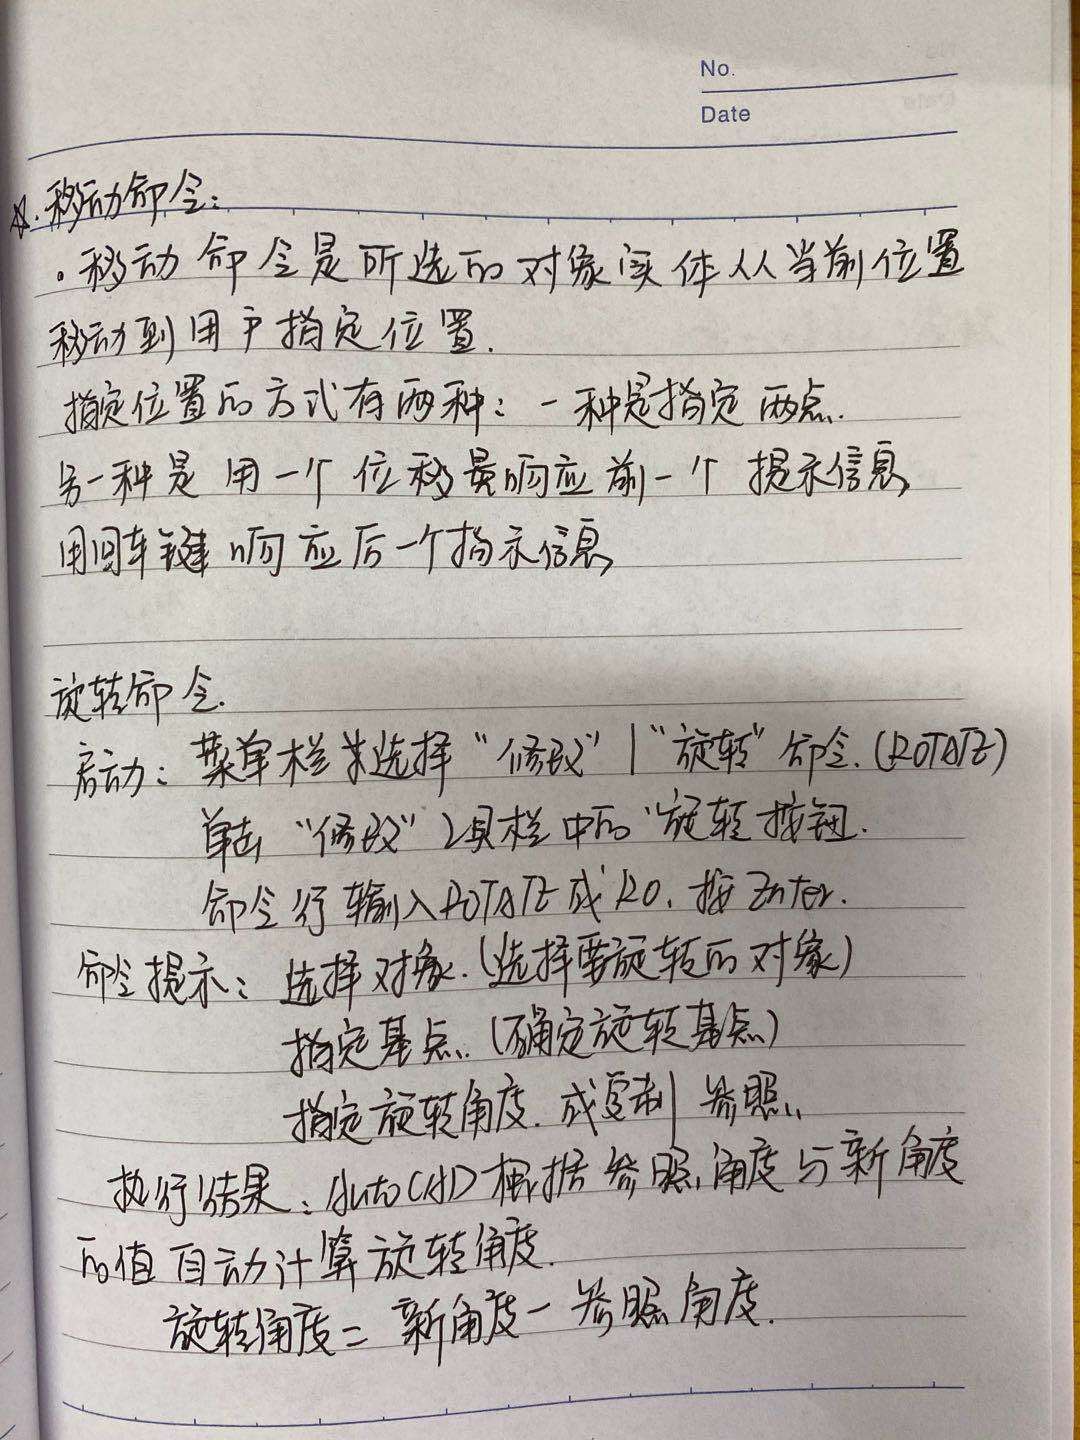 No.
Date
☆.移动命令:
。移动命令是所选的对象实体从当前位置
移动到用户指定位置.
指定位置的方式有两种:一种是指定两点.
另一种是用一个位移量响应前一个提示信息,
用回车键响应后一个指示信息,
旋转命令.
启动:菜单栏来选择“修改”|“旋转”命令.(ROTATE)
单击“修改”工具栏中的“旋转按钮.
命令行输入ROTATE或RO,按Enter.
命令提示:选择对象.(选择要旋转的对象)
指定基点.(确定旋转基点)
指定旋转角度.或复制 参照.
执行结果:AutoCAD根据参照角度与新角度
的值自动计算旋转角度.
旋转角度=新角度-参照角度.